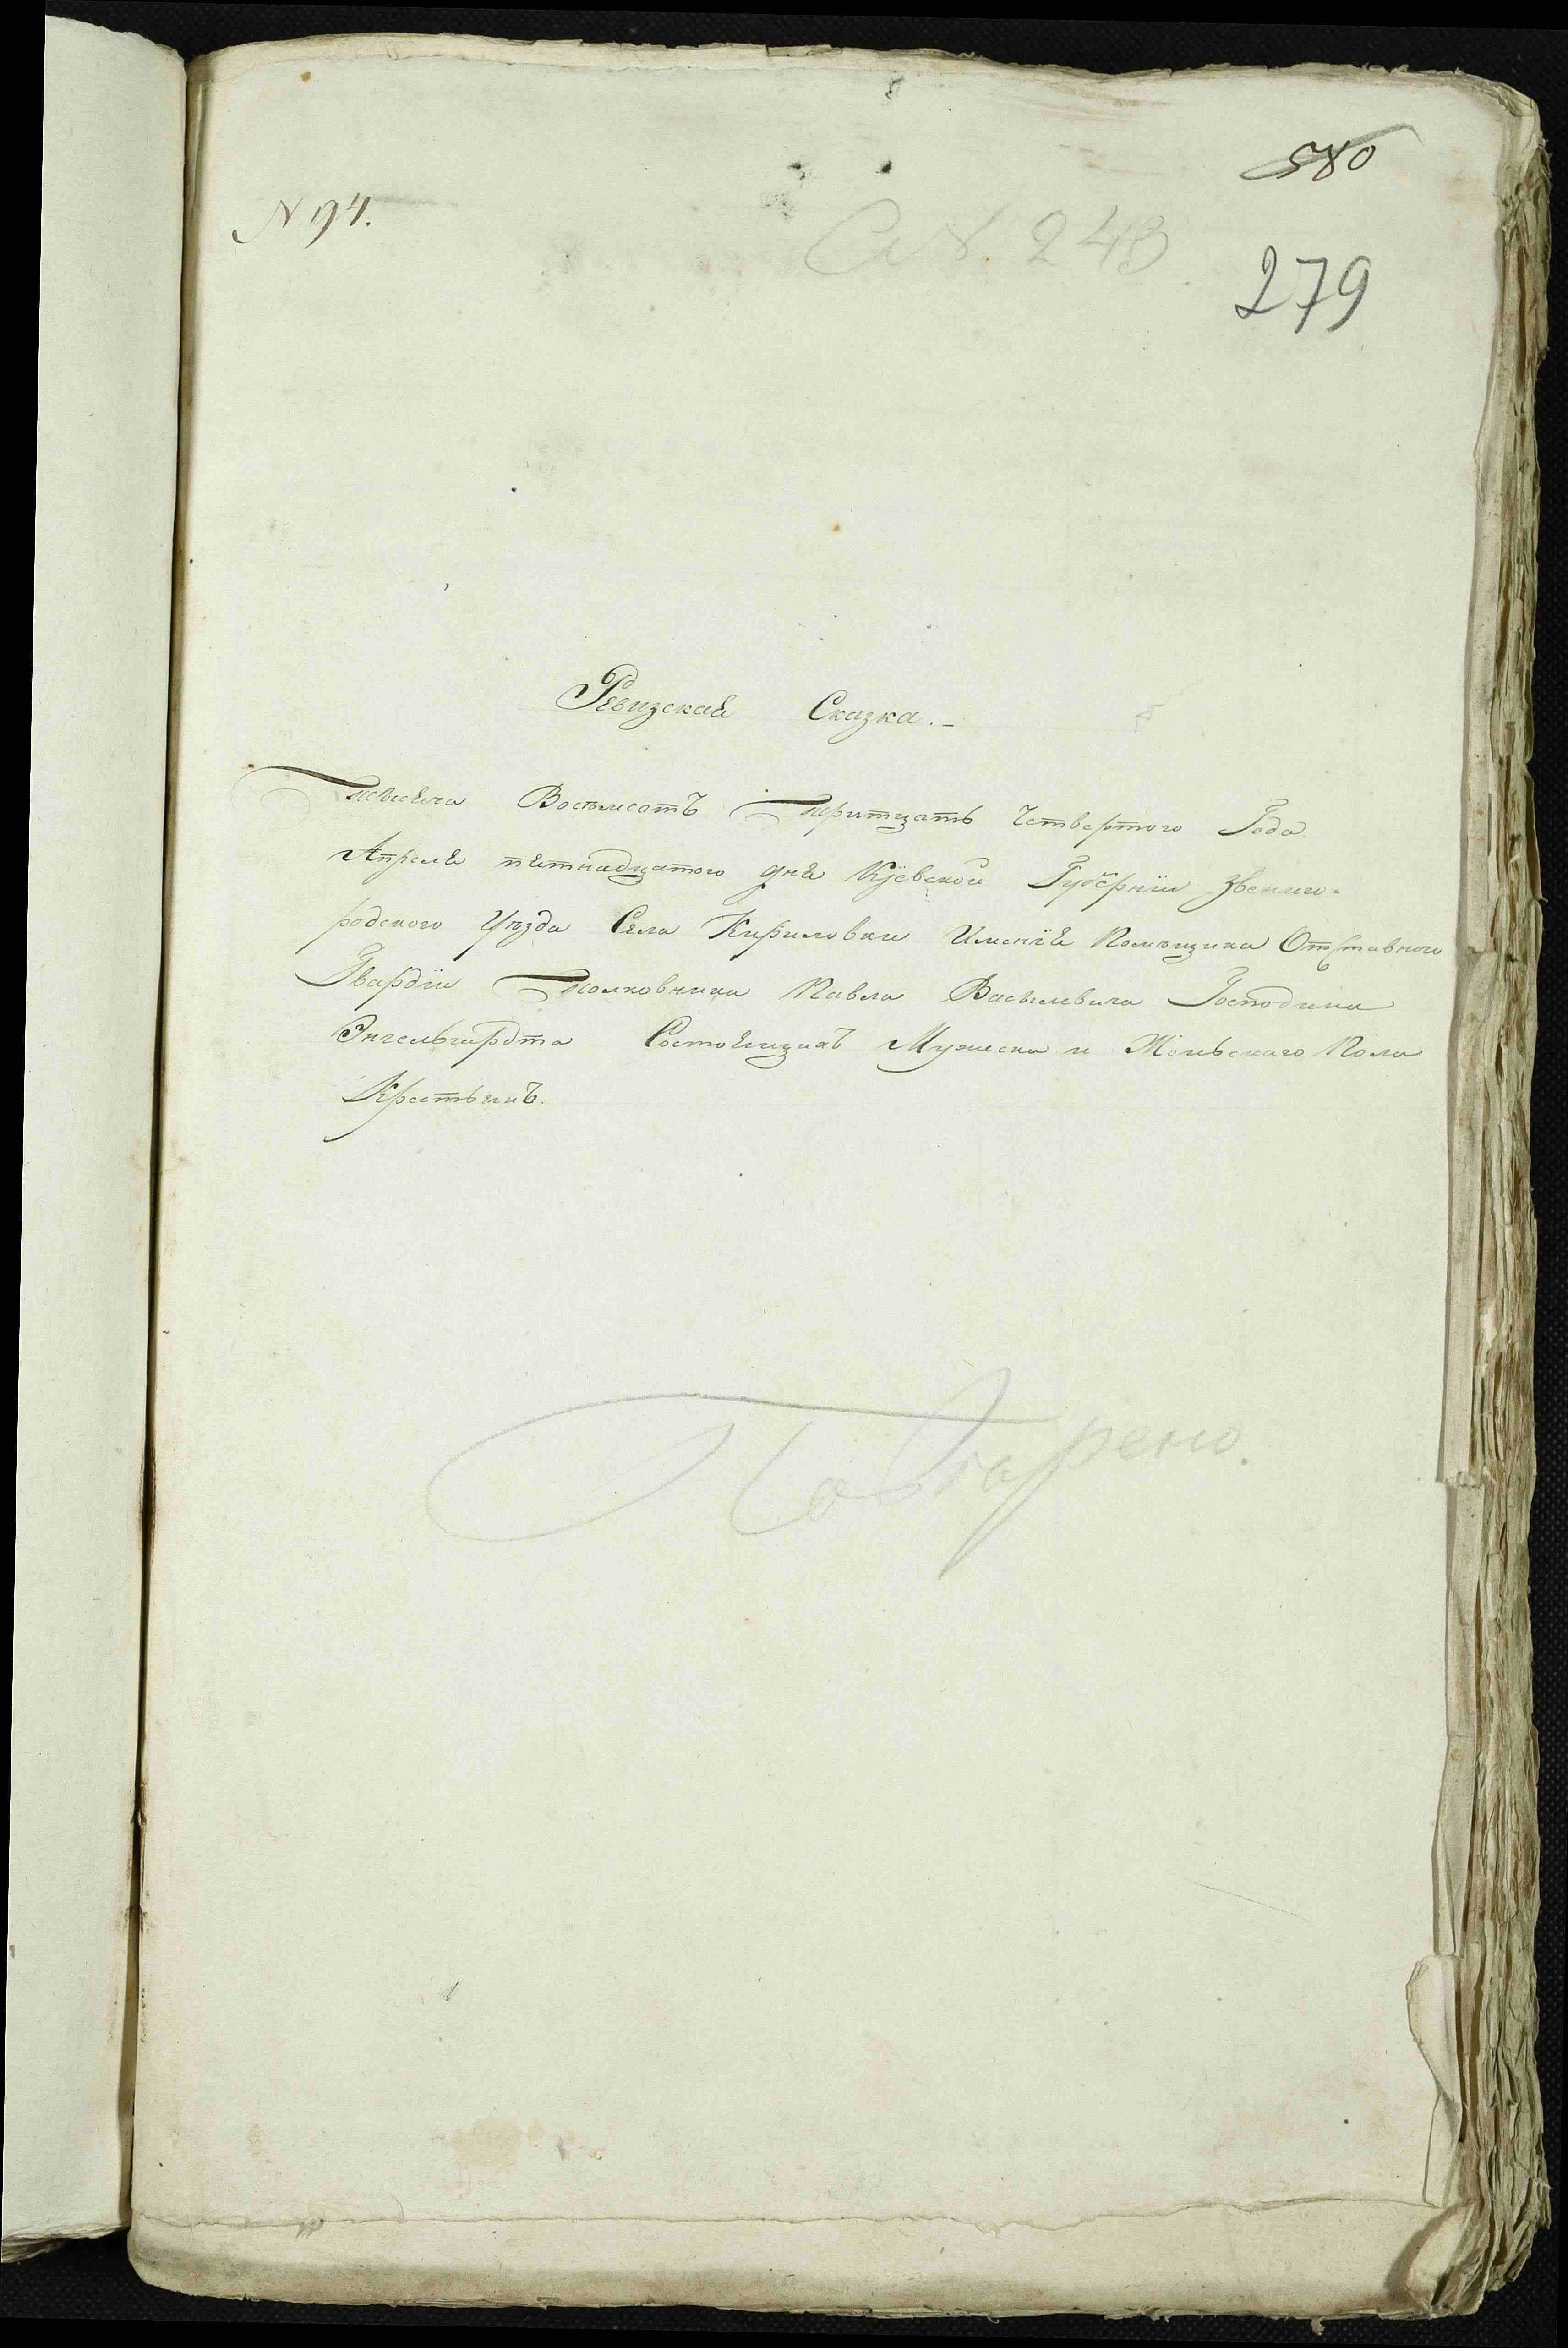 580
N 94.
Ст. 243
279
Ревизская Сказка.
Тысяча Восемсотъ Тритцать Четвертого Года
Апреля пятнадцатого дня Кіевской Губерніи Звениго-
родского Уезда Села Кириловки Именія Помещика Отставного
Гвардіи Полковника Павла Васильевича Господина
Энгельгардта Состоящихъ Мужеска и Женьскаго Пола
Крестьянъ.